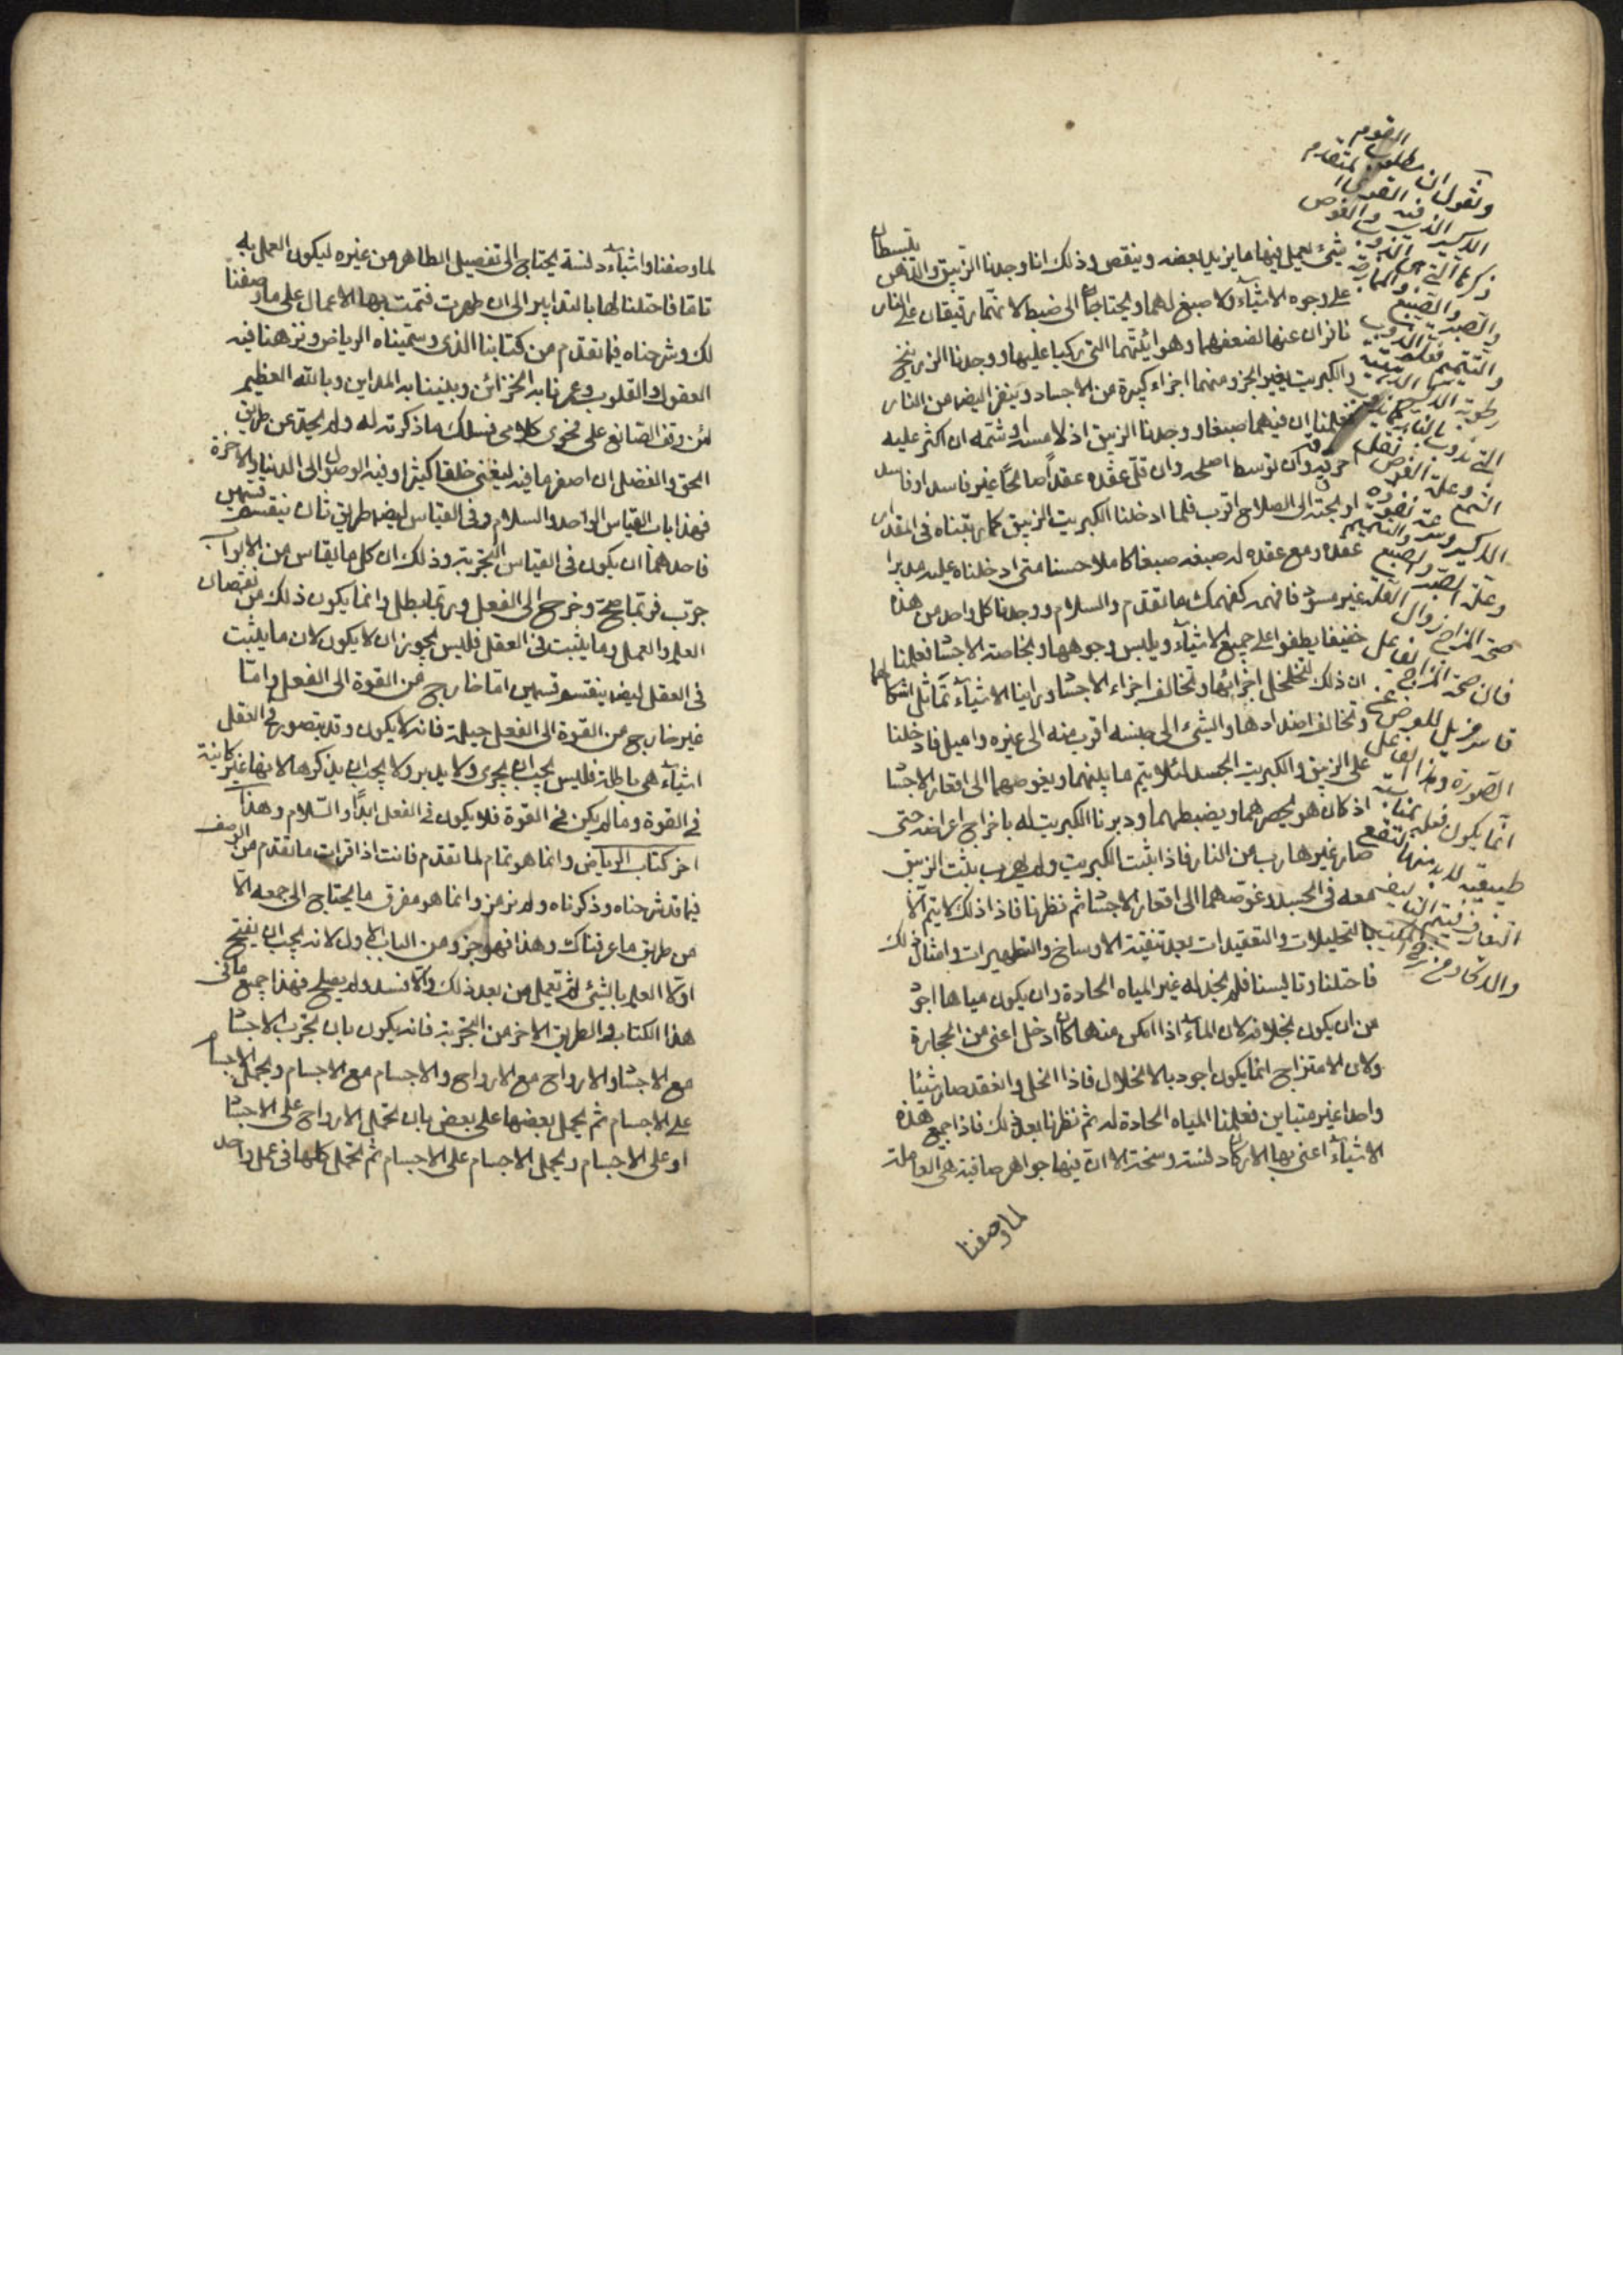 ونقول ان مطلوب القوم
الاكسير الذى فيه القوى المتقدم
ذكرها التى هى الذوب والغوص
والصبر والصبغ والممازجة
والتتميم فعلة الذوب
رطوبة الاكسير الدهنية
التى تذوب بالنار كما يذوب
الشمع وعلة الغوص ثقل
الاكسير وسرعة نفوذه
وعلة الصبر والصبغ والتتميم
صحة المزاج زوال العلة
فان صحة المزاج
الصورة وهذا الفاعل
انما يكون فعله بمناسبة
طبيعية لا بد منها لتقع
شىء يعمل فيها ما يزيد بعضه وينقص وذلك انا وجدنا الزيبق والدهن ينبسطان
على وجوه الاشياء ولا صبغ لهما ويحتاجان الى ضبط لانهما رقيقان على النار
نافران عنها لضعفهما وهوائيتهما التى ركبا عليها ووجدنا الزرنيخ
والكبريت يغير الجزو منهما اجزاء كبيرة من الاجساد وينفر ايضا من النار
فعلمنا ان فيهما صبغا ووجدنا الزيبق اذ لامسه او شمه ان اكثر عليه
احرقه وان توسط اصلحه وان قل عقده عقدا صالحا غير فاسد او فاسد
او يجئه الى الصلاح اقرب فلما ادخلنا الكبريت الزيبق كما رتبناه فى المقدار
عقده ومع عقده له صبغه صبغا كاملا حسنا متى ادخلناه عليه مدبرا
غير مسود فافهم كفهمك ما تقدم والسلام ووجدنا كل واحد من هذه
خفيفا يطفوا على جميع الاشياء ويلبس وجوهها وبخاصة الاجساد فعلمنا
ان ذلك لتخلخل اجزائها وتخالف اجزاء الاجساد وراينا الاشياء تماثل اشكالها
وتخالف اضدادها والشىء الى جنسه اقرب منه الى غيره واميل فادخلنا
على الزيبق والكبريت الجسد لئلا يتم ما يلينهما ويغوصهما الى اقعار الاجساد
اذ كان هو يحصرهما ويضبطهما ودبرنا الكبريت له باخراج اعراضه حتى
صار غير هارب من النار فاذا ثبت الكبريت ولم يهرب يثبت الزيبق
معه فى الجسد وغوصهما الى اقعار الاجساد ثم نظرنا فاذا ذلك لا يتم الا
بالتحليلات والتعقيدات بعد تنقية الاوساخ والتطهيرات وامثال ذلك
فاحتلنا وتاليسنا فلم نجد له غير المياه الحادة وان يكون مياها اجود
من ان يكون بخلافه لان الماء اذا امكن منها كان ادخل اعنى من الحجارة
ولان الامتزاج انما يكون اجود بالانحلال فاذا انحل وانعقد صار شيئا
واحدا غير متباين فعلمنا المياه الحادة له ثم نظرنا بعد ذلك فاذا جميع هذه
الاشياء اعنى بها الاركان دنسة وسخة الا ان فيها جواهر صافية هى العاملة
لما وصفنا
لما وصفنا واشياء دنسة يحتاج الى تفصيل الطاهر من غيره ليكون العمل به
تاما فاحتلنا لها بالتدابير الى ان طهرت فتمت بها الاعمال على ما وصفنا
لك وشرحناه فيما تقدم من كتابنا الذى وسميناه الرياض ونزهنا فيه
العقول والقلوب وعمرنا به الخزائن وبنينا به المداين وبالله العظيم
لئن وقف الصانع على نحوى كلامى فسلك ما ذكرته له ولم يحد عن طريق
الحق والفضل ان اصغر ما فيه ليغنى خلقا كثيرا وفيه الوصول الى الدنيا والاخرة
فهذا باب القياس الواحد والسلام وفى القياس ايضا طريق ثان ينقسم قسمين
فاحدهما ان يكون فى القياس التجربة وذلك ان كل ما يقاس من الابواب
جرب فربما صح وخرج الى الفعل وربما بطل وانما يكون ذلك من نقصان
العلم والعمل وما يثبت فى العقل فليس يجوز ان لا يكون لان ما يثبت
فى العقل ايضا ينقسم قسمين اما خارج من القوة الى الفعل واما
غير خارج من القوة الى الفعل جملة فانه لا يكون وقد يتصور فى العقل
اشياء هى باطلة فليس يجب ان يجرى ولا يدبر ولا يجب ان يذكرها لانها غير كاينة
فى القوة وما لم يكن فى القوة فلا يكون فى الفعل ابدا والسلام وهذا
اخر كتاب الرياض وانما هو تمام لما تقدم فانت اذا قرات ما تقدم من الوصف
فيما قد شرحناه وذكرناه ولم نرمز وانما هو مفرق ما يحتاج الى جمعه الا
من طريق ما عرفناك وهذا فهو جزو من الباب الاول لانه يجب ان يفتح
اولا العلم بالشىء ثم تعمل من بعد ذلك والا فسد ولم يصلح فهذا جميع ما فى
هذا الكتاب والطريق الاخر من التجربة فانه يكون بان تجرب الاجساد
مع الاجساد والارواح مع الارواح والاجسام مع الاجسام ويحمل الاجسام
على الاجسام ثم يحمل بعضها على بعض بان تحمل الارواح على الاجساد
او على الاجسام ويحمل الاجسام على الاجسام ثم تحمل كلها فى عمل واحد